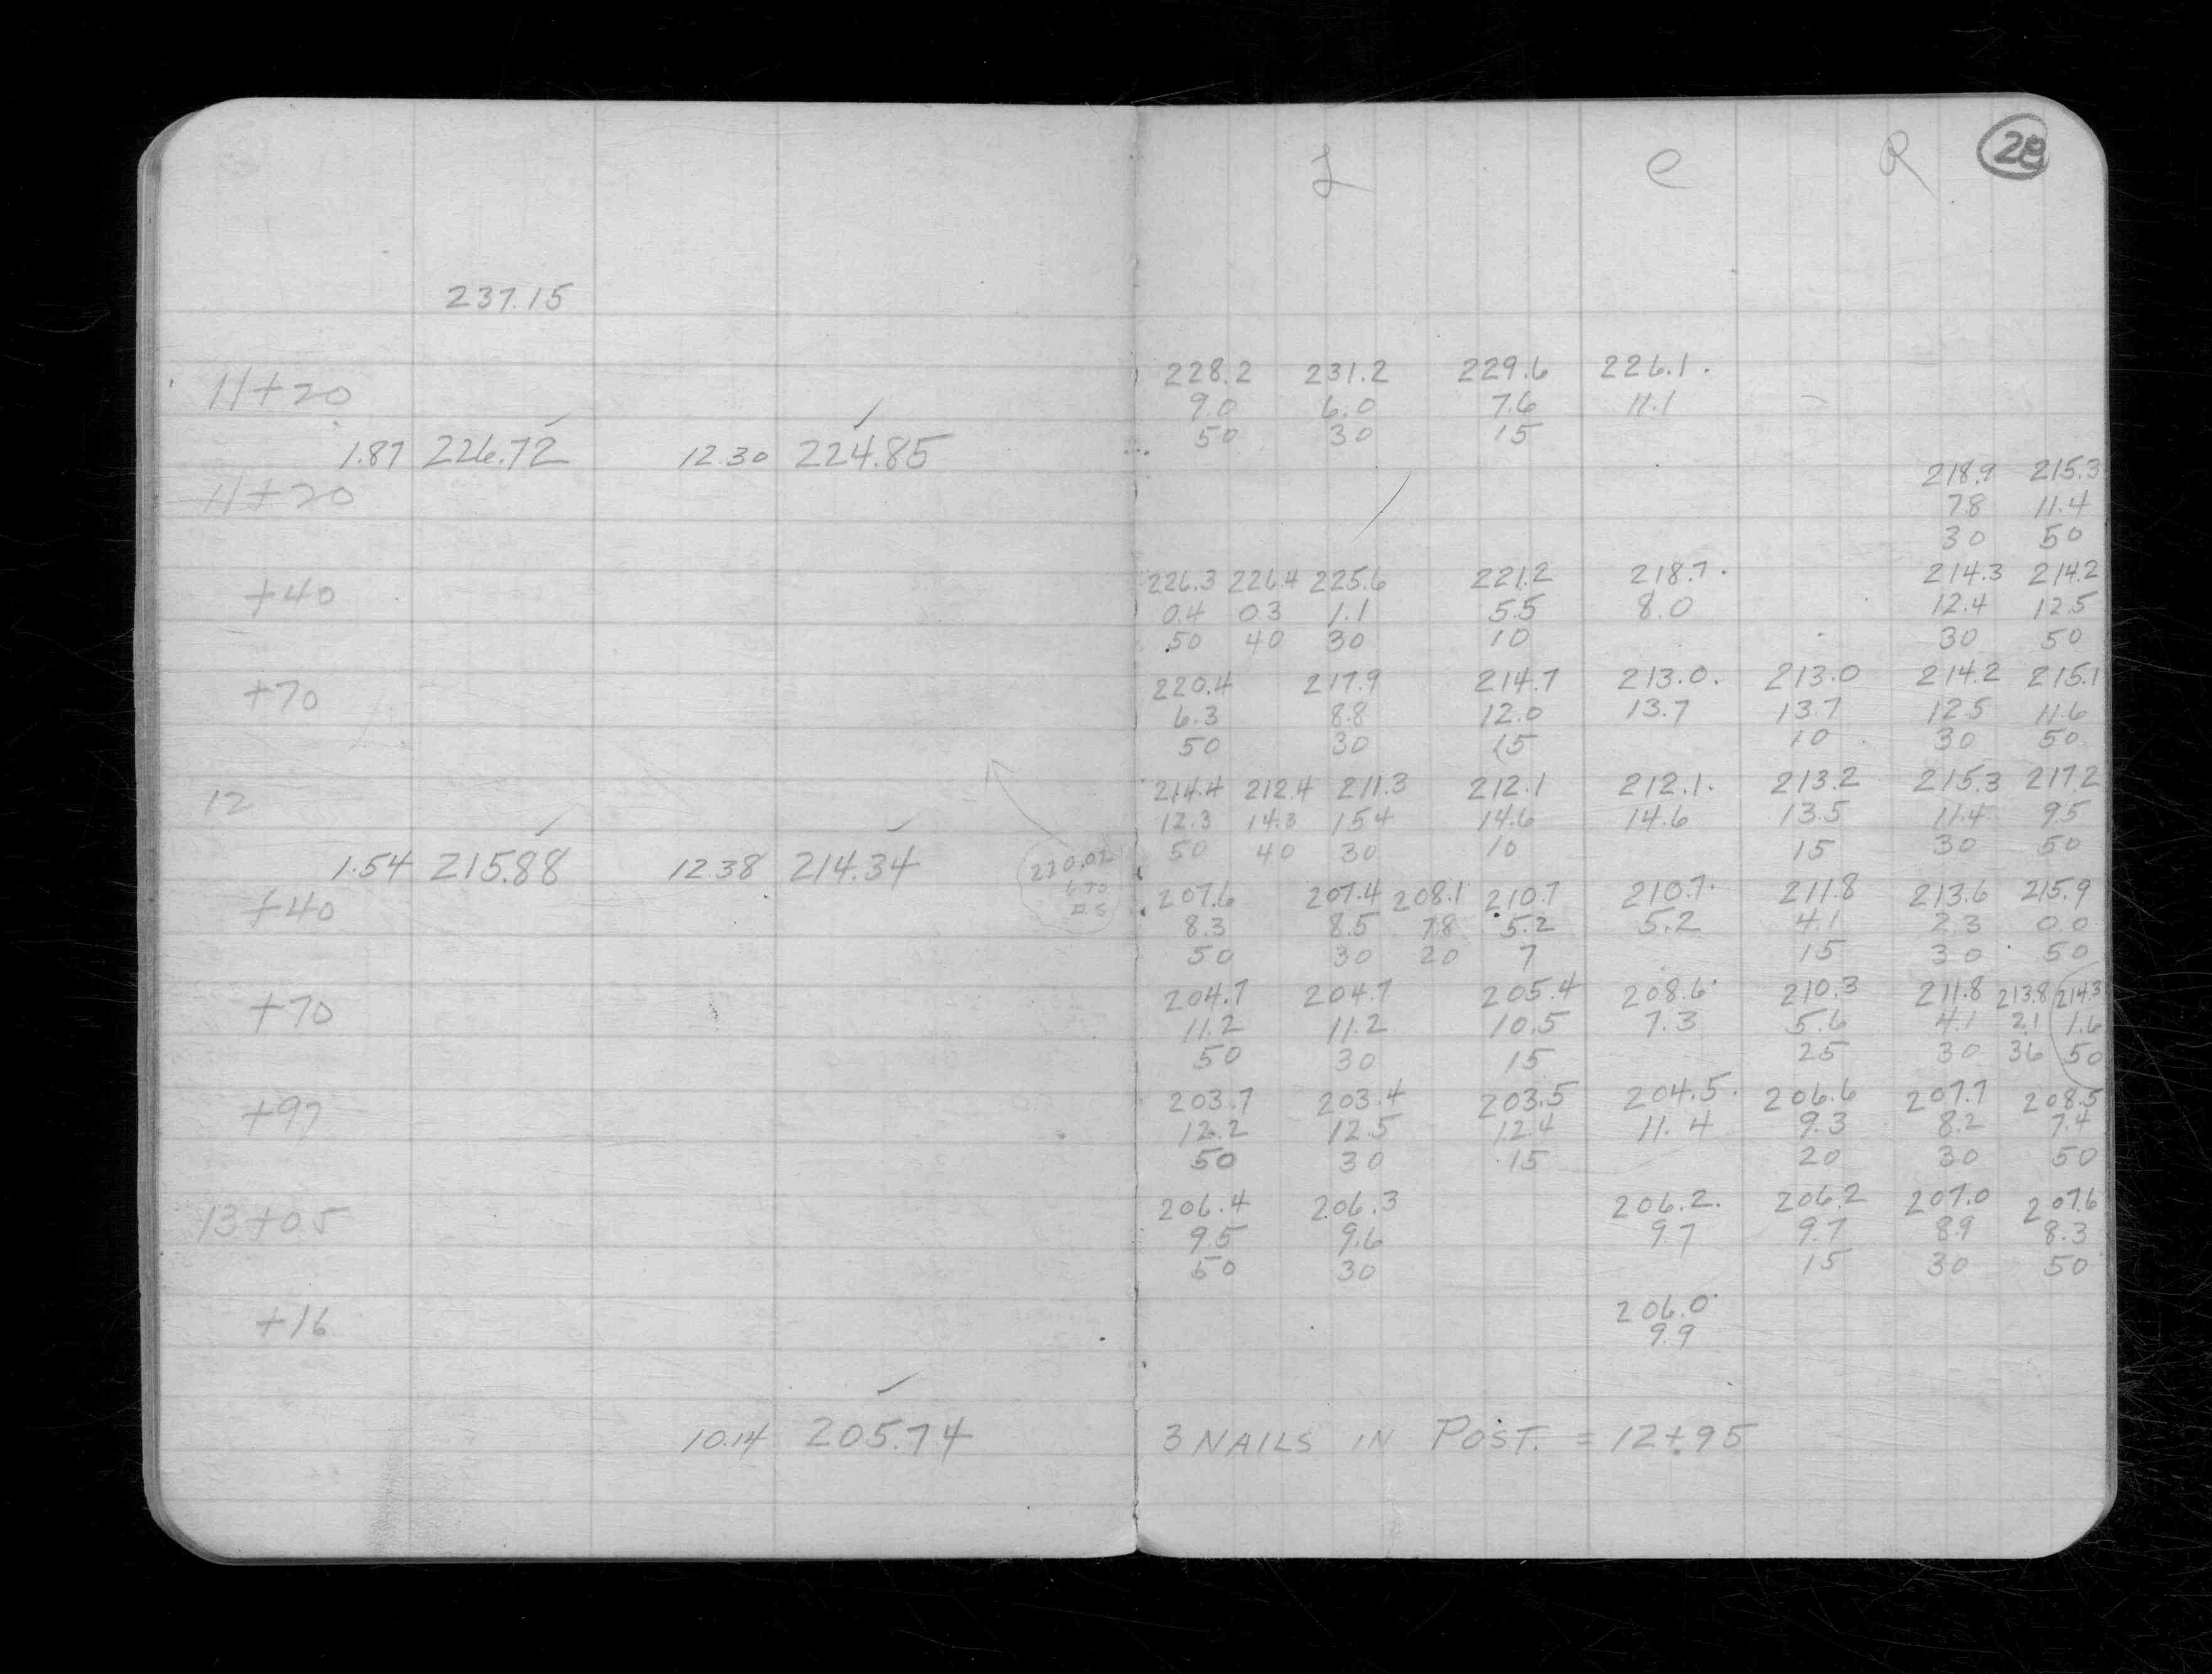 L C R 28
237.15
228.2 231.2 229.6 226.1.
11+20 9.0 6.0 7.6 11.1
50 30 15
1.87 226.72 12.30 224.85
218.9 215.3
11+20 7.8 11.4
30 50
226.3 226.4 225.6 221.2 218.7. 214.3 214.2
+40 0.4 0.3 1.1 5.5 8.0 12.4 12.5
50 40 30 10 30 50
220.4 217.9 214.7 213.0. 213.0 214.2 215.1
+70 6.3 8.8 12.0 13.7 13.7 12.5 11.6
50 30 15 10 30 50
214.4 212.4 211.3 212.1 212.1. 213.2 215.3 217.2
12 12.3 14.3 15.4 14.6 14.6 13.5 11.4 9.5
50 40 30 10 15 30 50
1.54 215.88 12.38 214.34 220.02
207.6 207.4 208.1 210.7 210.7. 211.8 213.6 215.9
+40 8.3 8.5 7.8 5.2 5.2 4.1 2.3 0.0
50 30 20 7 15 30 50
204.7 204.7 205.4 208.6. 210.3 211.8 213.8 214.3
+70 11.2 11.2 10.5 7.3 5.6 4.1 2.1 1.6
50 30 15 25 30 36 50
203.7 203.4 203.5 204.5. 206.6 207.7 208.5
+97 12.2 12.5 12.4 11.4 9.3 8.2 7.4
50 30 15 20 30 50
206.4 206.3 206.2. 206.2 207.0 207.6
13+05 9.5 9.6 9.7 9.7 8.9 8.3
50 30 15 30 50
206.0.
+16 9.9
10.14 205.74 3 NAILS IN POST. = 12+95